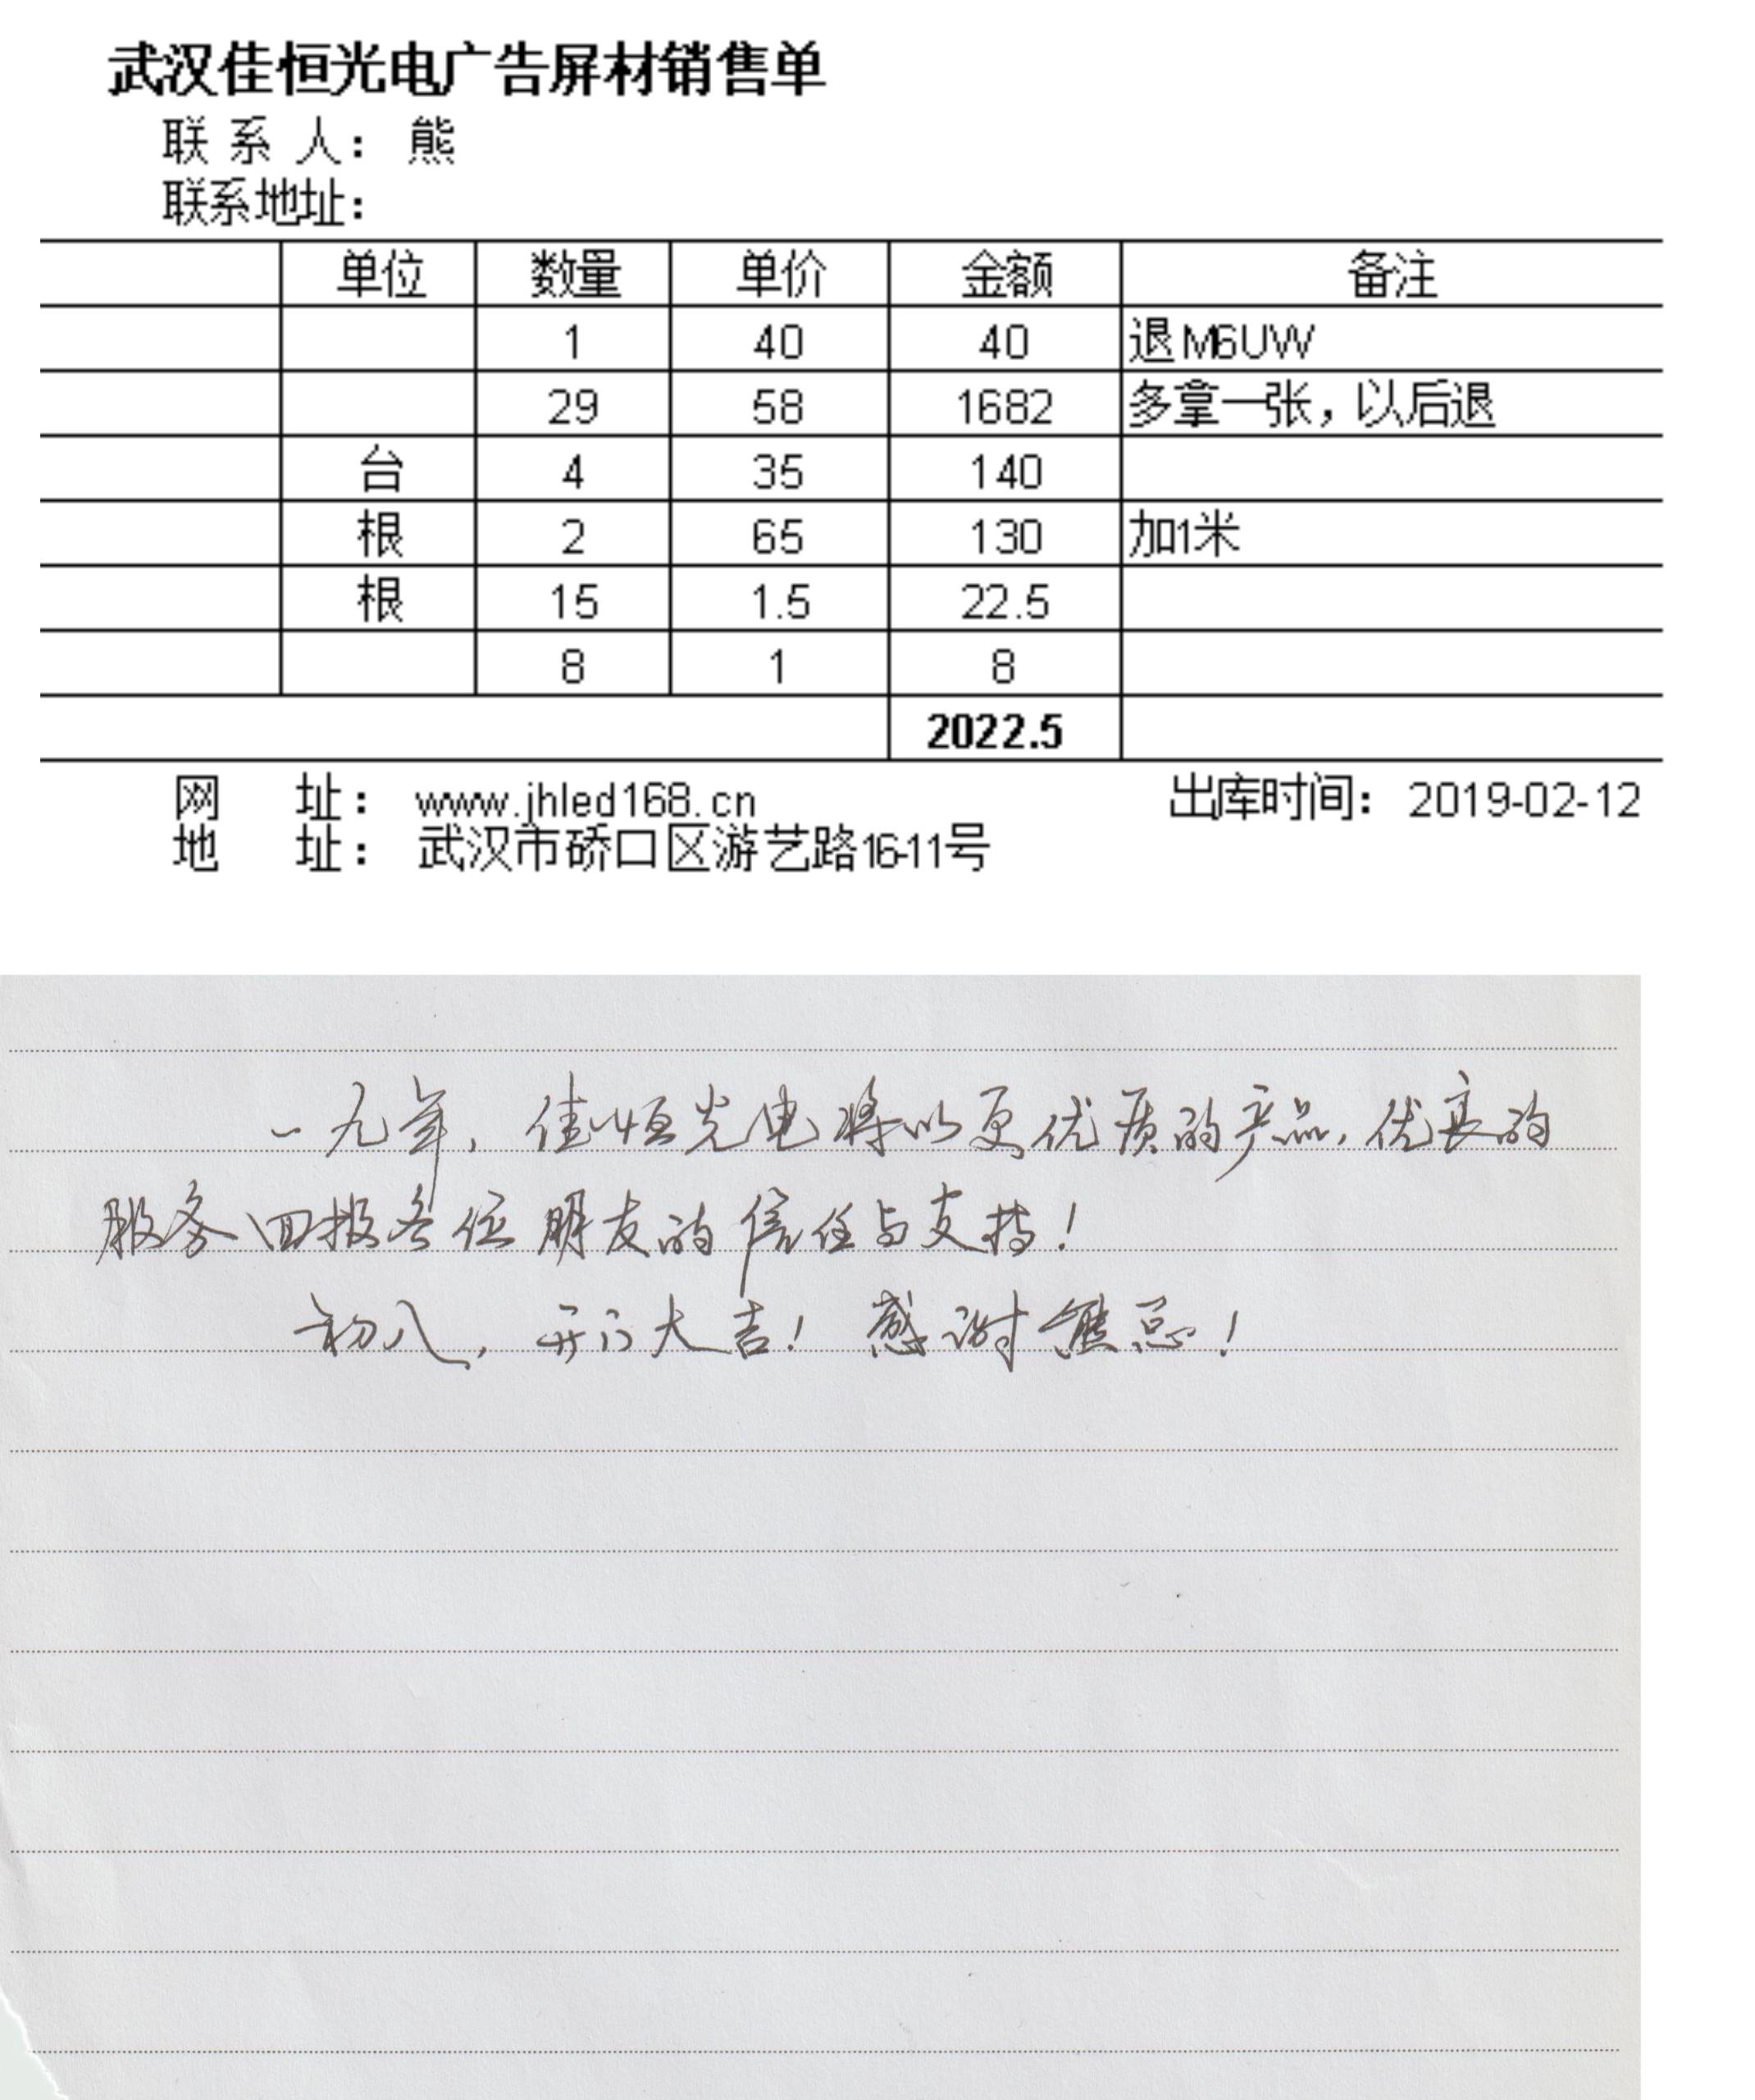 武汉佳恒光电广告屏材销售单
联 系 人： 熊
联系地址：
单位 数量 单价 金额 备注
1 40 40 退M6UW
29 58 1682 多拿一张，以后退
台 4 35 140
根 2 65 130 加1米
根 15 1.5 22.5
8 1 8
2022.5
网 址： www.jhled168.cn 出库时间： 2019-02-12
地 址： 武汉市硚口区游艺路16-11号
一九年，佳恒光电将以更优质的产品，优良的
服务回报各位朋友的信任与支持！
初八，开门大吉！感谢熊总！